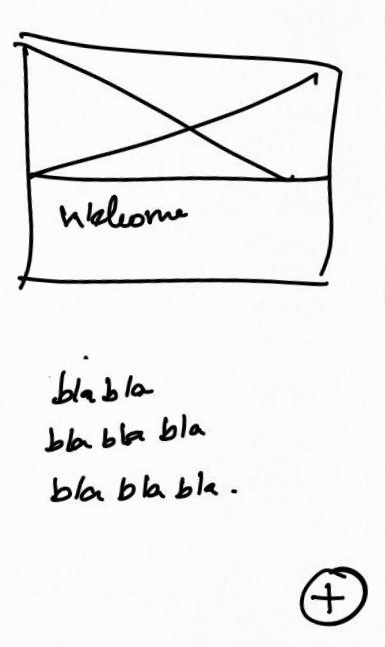 Welcome
bla bla
bla bla bla
bla bla bla.
+